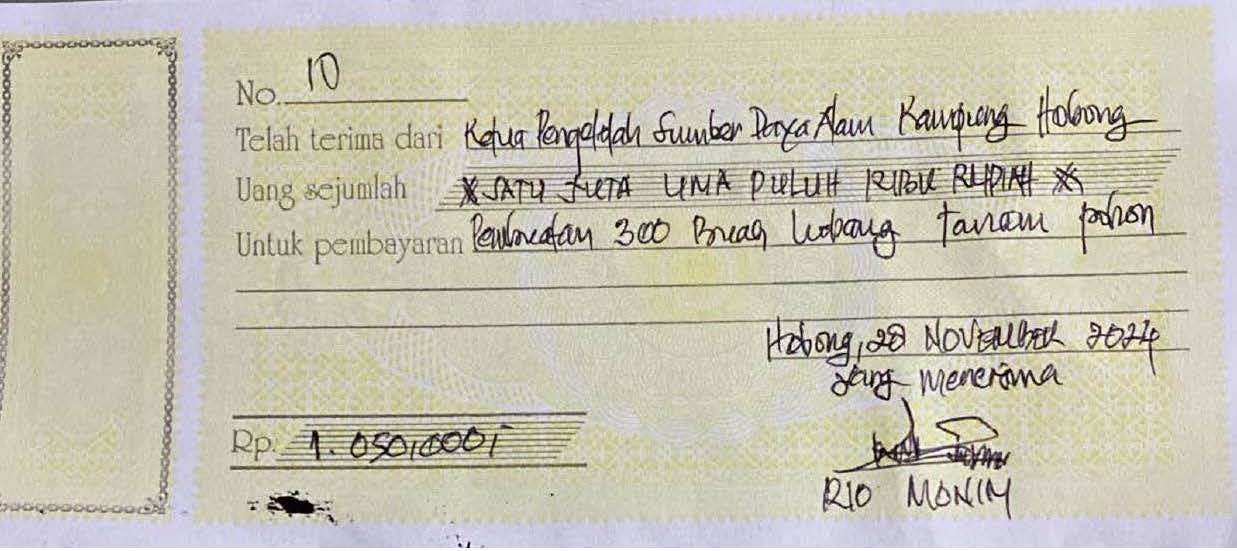 No. 10
Telah terima dari Ketua Pengelolah Sumber Daya Alam Kampung Hobong
Uang sejumlah * SATU JUTA LIMA PULUH RIBU RUPIAH *
Untuk pembayaran Pembuatan 300 Buah Lobang tanam pohon
Hobong, 28 NOVEMBER 2024
yang menerima
Rp. 1.050.000,-
RIO MONIM